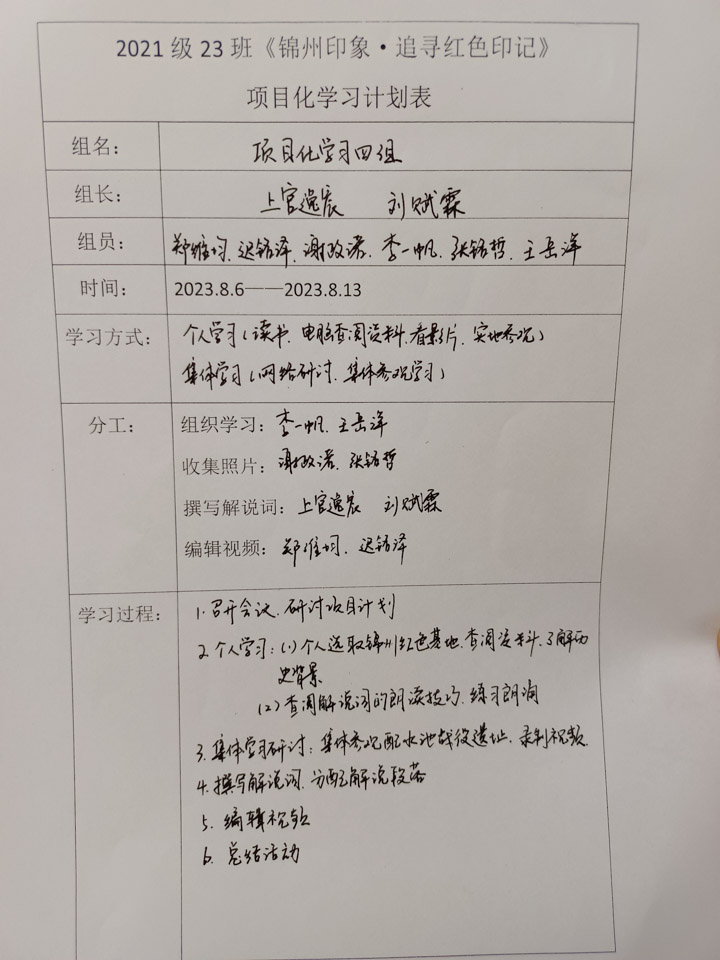 2021 级 23 班《锦州印象·追寻红色印记》
项目化学习计划表
组名： 项目化学习四组
组长： 上官逸宸 刘赋霖
组员： 郑维均、迟铭泽、谢政诺、李一帆、张铭哲、王岳洋
时间： 2023.8.6——2023.8.13
学习方式： 个人学习（读书、电脑查阅资料、看影片、实地参观）
集体学习（网络研讨、集体参观学习）
分工： 组织学习：李一帆、王岳洋
收集照片：谢政诺、张铭哲
撰写解说词：上官逸宸 刘赋霖
编辑视频：郑维均、迟铭泽
学习过程： 1.召开会议、研讨项目计划
2.个人学习：(1)个人选取锦州红色基地、查阅资料、了解历
史背景
(2)查阅解说词的朗读技巧、练习朗诵
3.集体学习研讨：集体参观配水池战役遗址、录制视频.
4.撰写解说词、分配解说段落
5.编辑视频
6.总结活动